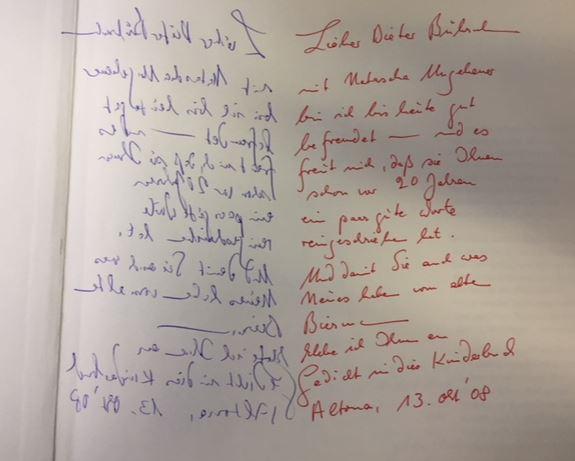 Lieber Dieter
mit Natascha Ungeheuer
bin ich bis heute gut
befreundet — und es
freut mich, daß sie Ihnen
schon vor 20 Jahren
ein paar gute Worte
reingeschrieben hat.
Und damit Sie auch was
Neues haben vom alten
Biermann
klebe ich Ihnen ein
Gedicht in dies Kinderbuch
Altona, 13. Okt '08